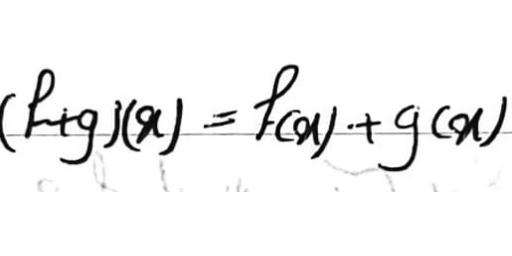 (f+g)(x) = f(x) + g(x)